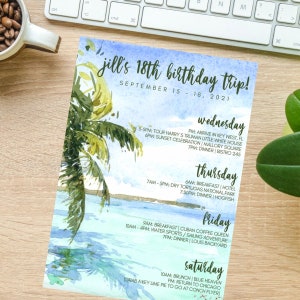 jill's 18th birthday trip!
SEPTEMBER 15 - 18, 2021
wednesday
PM: ARRIVE IN KEY WEST
5-6PM: TOUR HARRY S TRUMAN LITTLE WHITE HOUSE
6PM: SUNSET CELEBRATION | MALLORY SQUARE
7PM: DINNER | BISTRO 245
thursday
6AM: BREAKFAST | HOTEL
7AM - 5PM: DRY TORTUGAS NATIONAL PARK
7PM: DINNER | HOGFISH
friday
9AM: BREAKFAST | CUBAN COFFEE QUEEN
10AM - 4PM: WATER SPORTS / SAILING ADVENTURE
7PM: DINNER | LOUIS BACKYARD
saturday
10AM: BRUNCH | BLUE HEAVEN
PM: RETURN TO CHICAGO
KEY LIME PIE TO GO AT CONCH FLYER